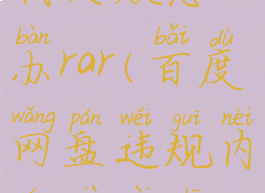 bàn bǎi dù
办rar(百度
wǎng pán wéi guī nèi
网盘违规内